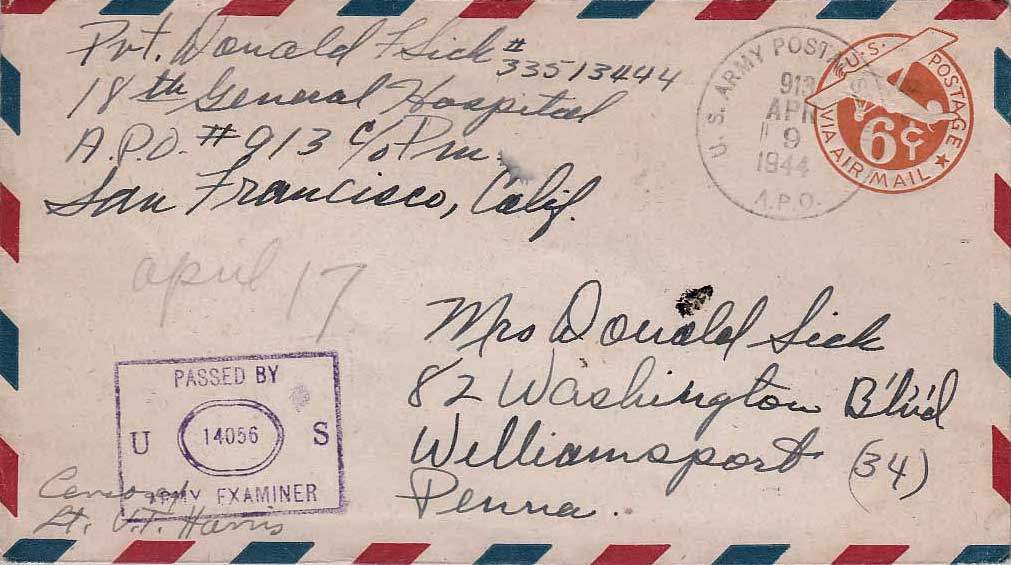 Pvt. Donald F Sick # 33513444
18th General Hospital
A.P.O. # 913 c/o Pm.
San Francisco, Calif.
U. S. ARMY POSTAL
913
APR
9
1944
A.P.O.
U.S. POSTAGE
6¢
VIA AIR MAIL
april 17
Mrs Donald Sick
82 Washington Blvd
Williamsport (34)
Penna.
PASSED BY
U 14056 S
ARMY EXAMINER
Lt. V.T. Harris